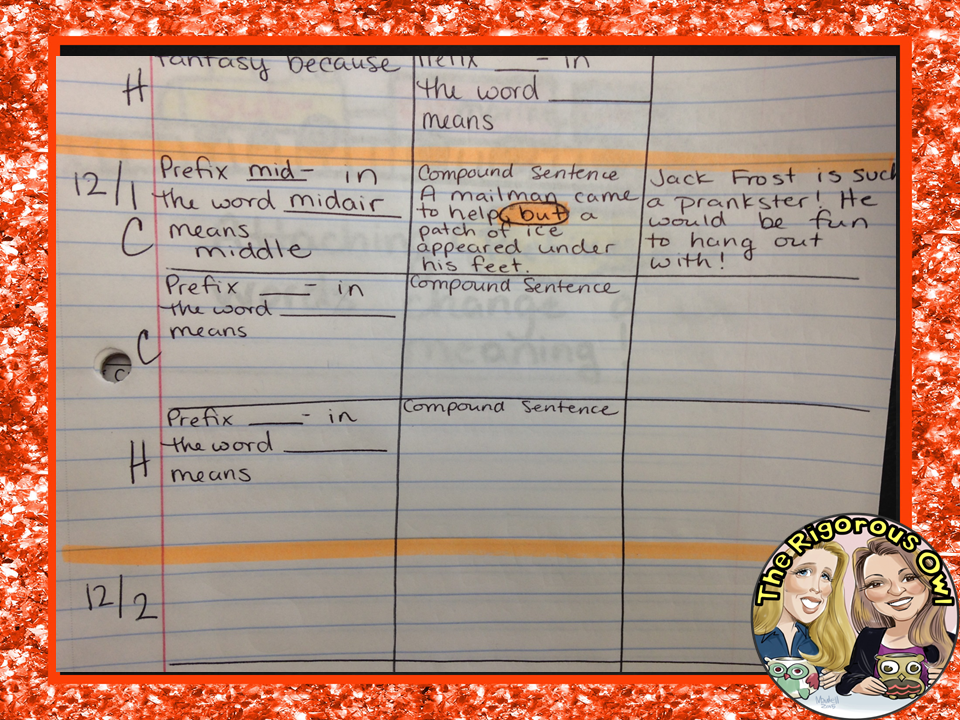 fantasy because
Prefix ___- in
H
the word ________
means
12/1
Prefix mid- in
the word midair
C
means
middle
Compound Sentence
A mailman came
to help, but a
patch of ice
appeared under
his feet.
Jack Frost is such
a prankster! He
would be fun
to hang out
with!
Prefix ___- in
the word ________
C
means
Compound Sentence
C
Prefix ___- in
the word ________
H
means
Compound Sentence
12/2
The Rigorous Owl